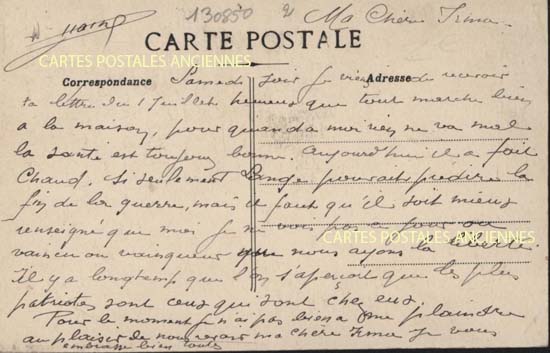 130850
Ma Chère Irma
CARTE POSTALE
CARTES POSTALES ANCIENNES
Correspondance
Adresse
Samedi soir je viens de recevoir
ta lettre du 1 Juillet heureux que tout marche bien
a la maison, pour quand a moi rien ne va mal
la santé est toujours bonne. aujourd'hui il a fait
Chaud. Si seulement pouvait prédire la
fin de la guerre, mais il faut qu'il soit mieux
renseigné que moi je ne vois pas
CARTES POSTALES ANCIENNES
vaincu ou vainqueur que nous ayons la
Il y a longtemps que l'on s'aperçoit que les plus
patriotes sont ceux qui sont chez eux.
Pour le moment je n'ai pas bien a me plaindre
au plaisir de nous revoir ma chère Irma je vous
embrasse bien toutes